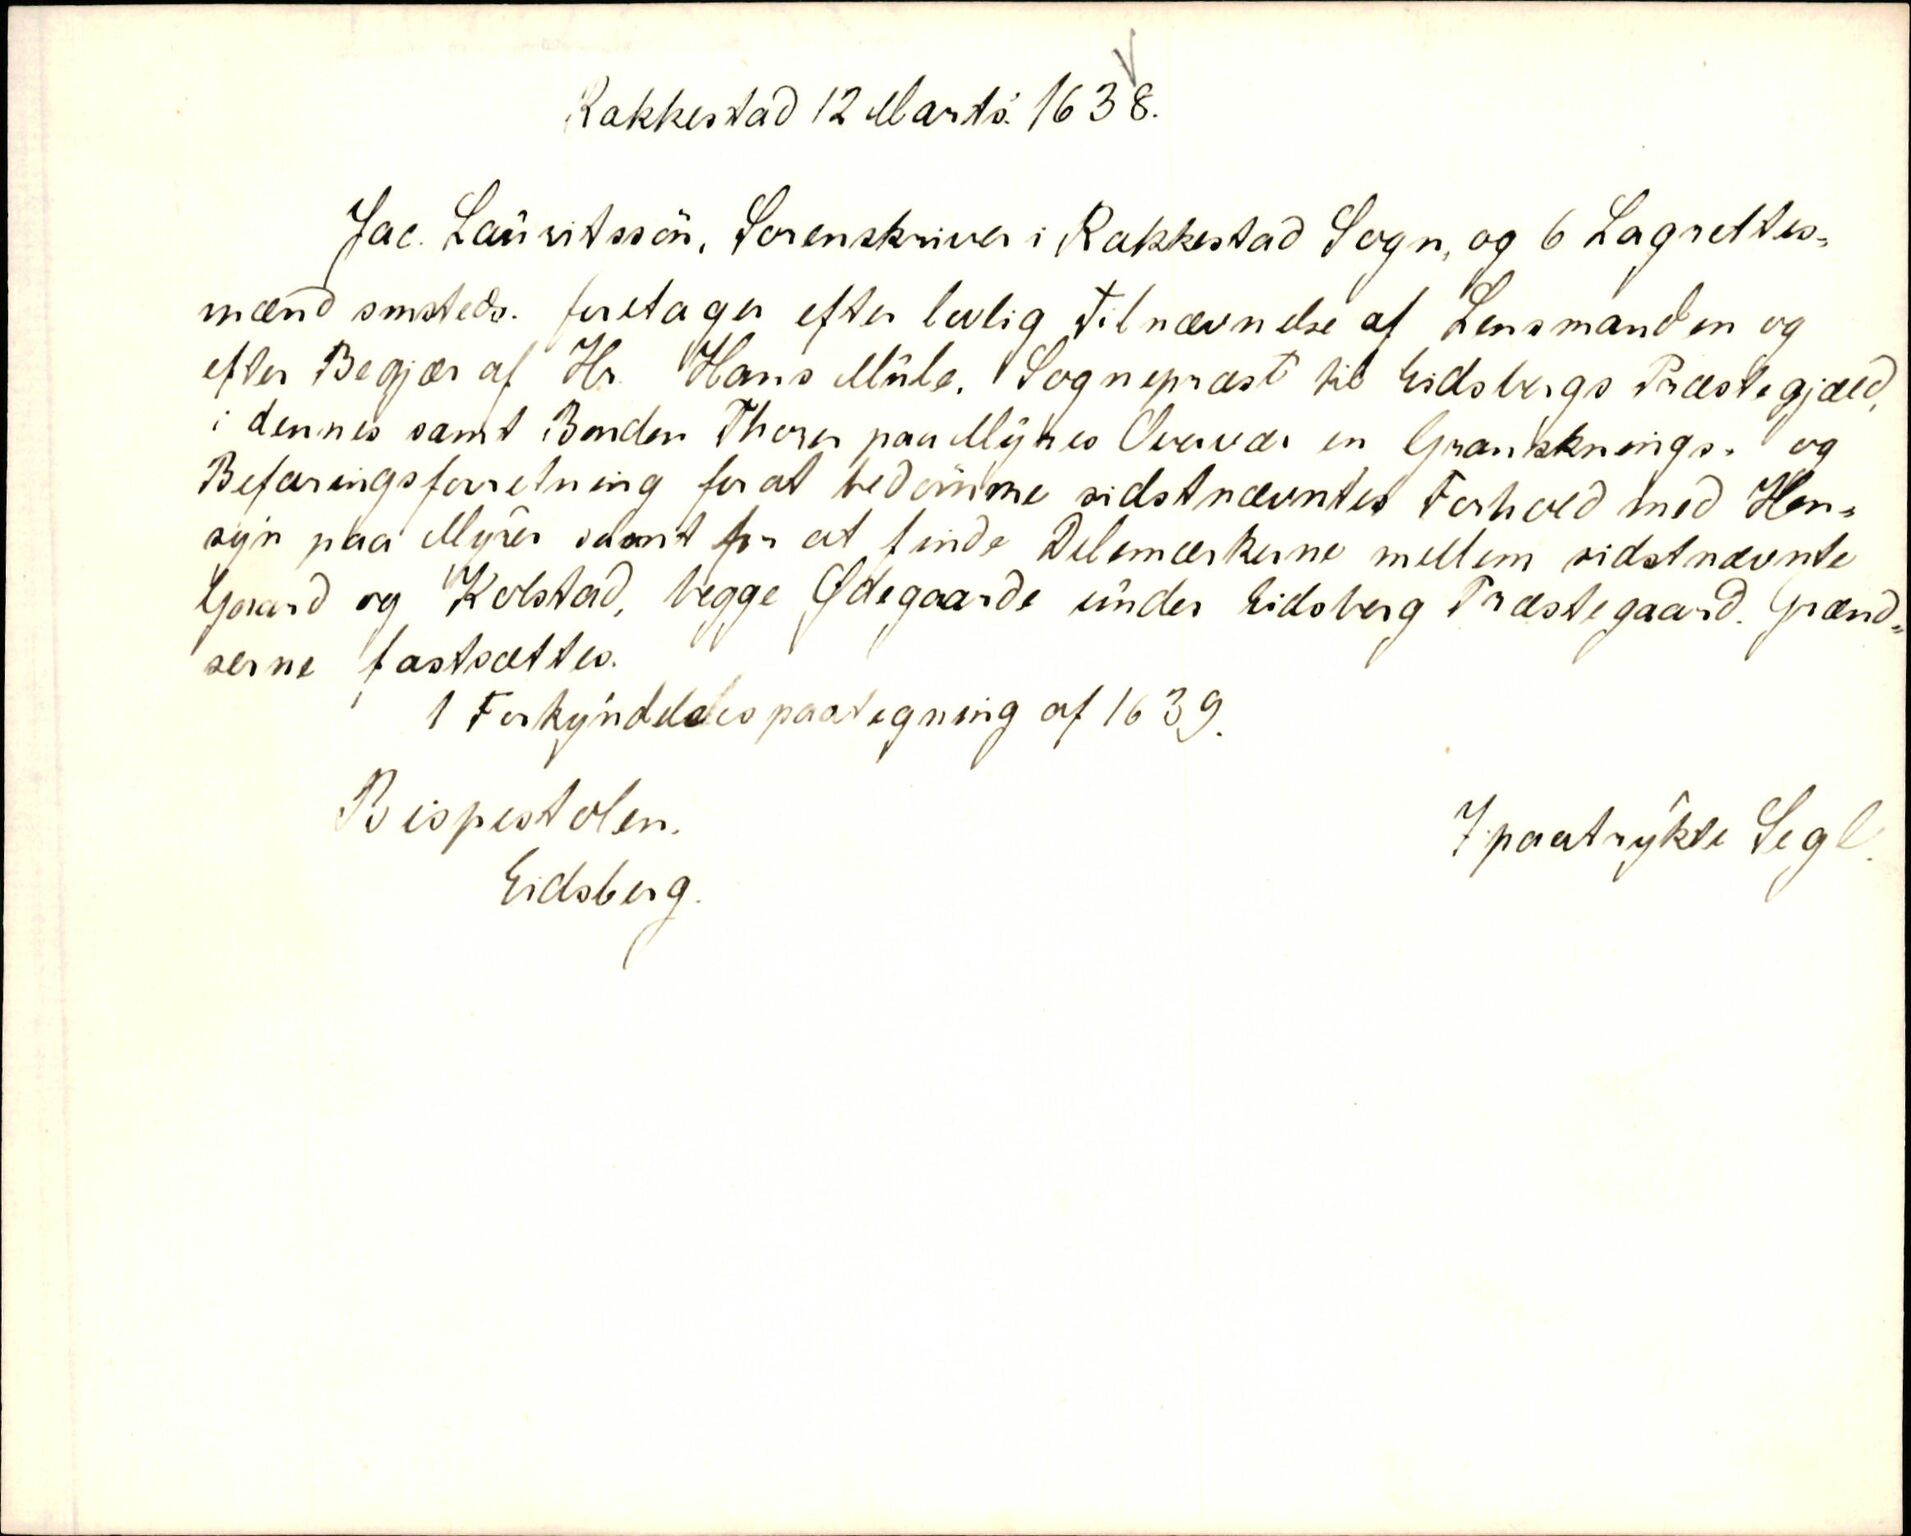 Rakkestad 12 Marts. 1638.
Jac. Lauritssön, Sorenskriver i Rakkestad Sogn, og 6 Lagrettes-
mænd smsteds. foretager efter lovlig Tilnævnelse af Lensmanden og
efter Begjær af Hr. Hans Mule, Sognepræst til Eidsbergs Præstegjæld,
i dennes samt Bonden Thorer paa Myres Overvær en Gransknings- og
Befaringsforretning for at bedömme sidstnævntes Forhold med Hen-
syn paa Myrer samt for at finde Delemærkerne mellem sidstnævnte
Gaard og Kolstad, begge Ødegaarde under Eidsberg Præstegaard. Grænd-
serne fastsættes.
1 Forkyndelsespaategning af 1639.
Bispestolen.
7 paatrykte Segl.
Eidsberg.